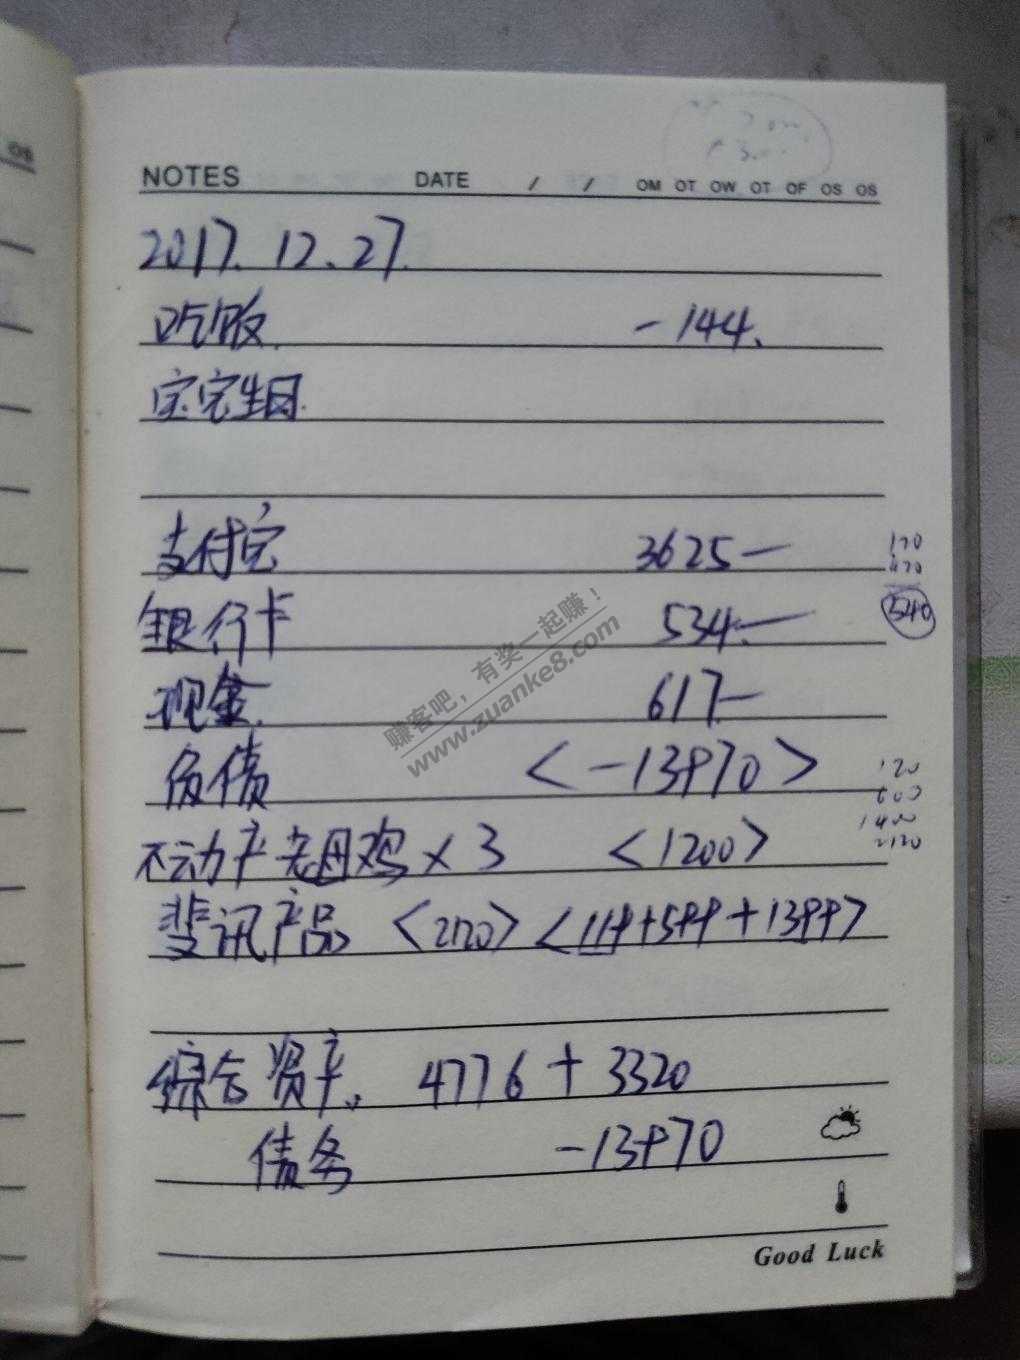 NOTES DATE / / OM OT OW OT OF OS OS
2017.12.27.
吃饭. -144.
宝宝生日.
支付宝 3625—
120
420
银行卡 534.—
540
现金. 617—
负债 <-13970>
120
600
1400
2120
不动产 老母鸡×3 <1200>
斐讯产品 <2120> <119+599+1399>
综合资产. 4776+3320
债务 -13970
Good Luck
赚客吧,有奖一起赚!
www.zuanke8.com